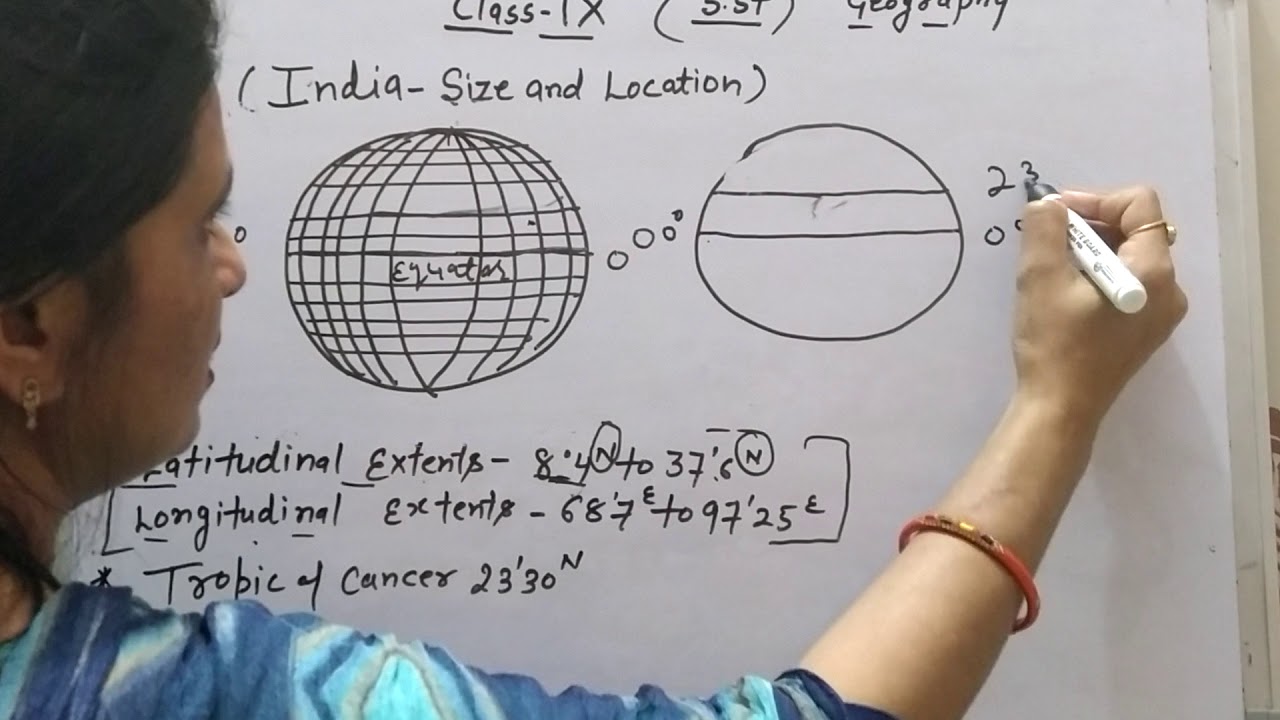 Class-IX (S.ST) Geography
(India- Size and Location)
0
Equator
0 0 0°
23
0°
Latitudinal Extents - 8°4 N to 37'6 N
Longitudinal Extents - 68'7 E to 97'25 E
* Tropic of Cancer 23'30 N